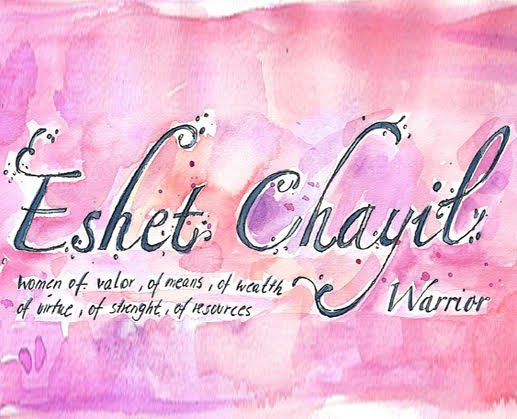 Eshet Chayil
women of valor, of means, of wealth
of virtue, of strenght, of resources
Warrior